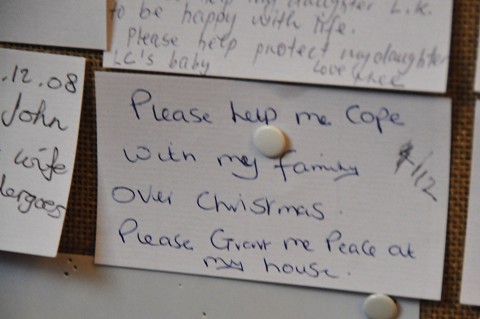 help my daughter L.K.
to be happy with life.
Please help protect my daughter
LC's baby
Love
.12.08
John
wife
Please help me Cope
with my family
Over Christmas.
Please Grant me Peace at
my house.
112